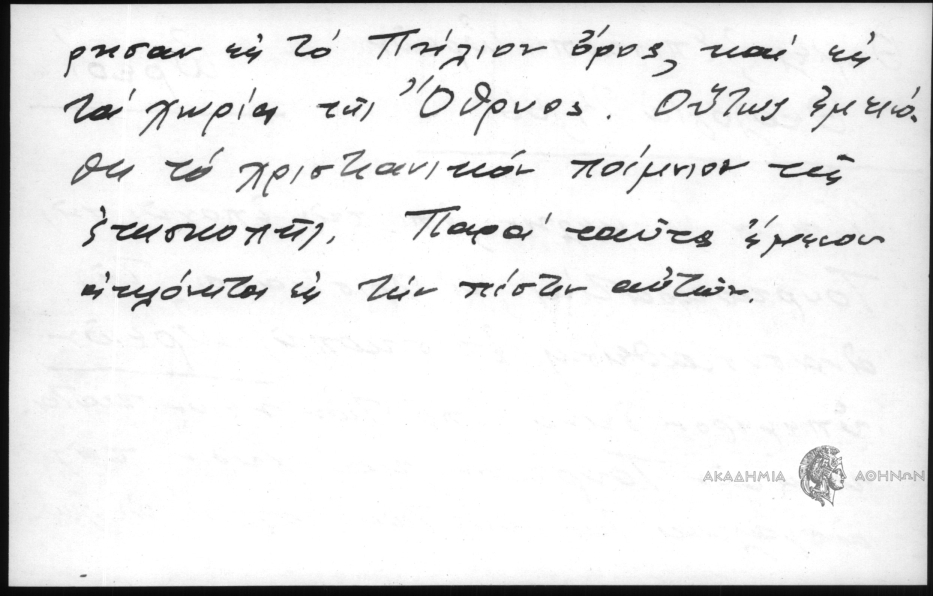 ρησαν εἰς τό Πήλιον ὄρος, καί εἰς
τά χωρία τῆς Ὄθρυος. Οὕτως ἐμειώ-
θη τό χριστιανικόν ποίμνιον τῆς
ἐπισκοπῆς. Παρά ταῦτα ἔμειναν
ἀκλόνητοι εἰς τήν πίστιν αὐτῶν.
ΑΚΑΔΗΜΙΑ ΑΘΗΝΩΝ